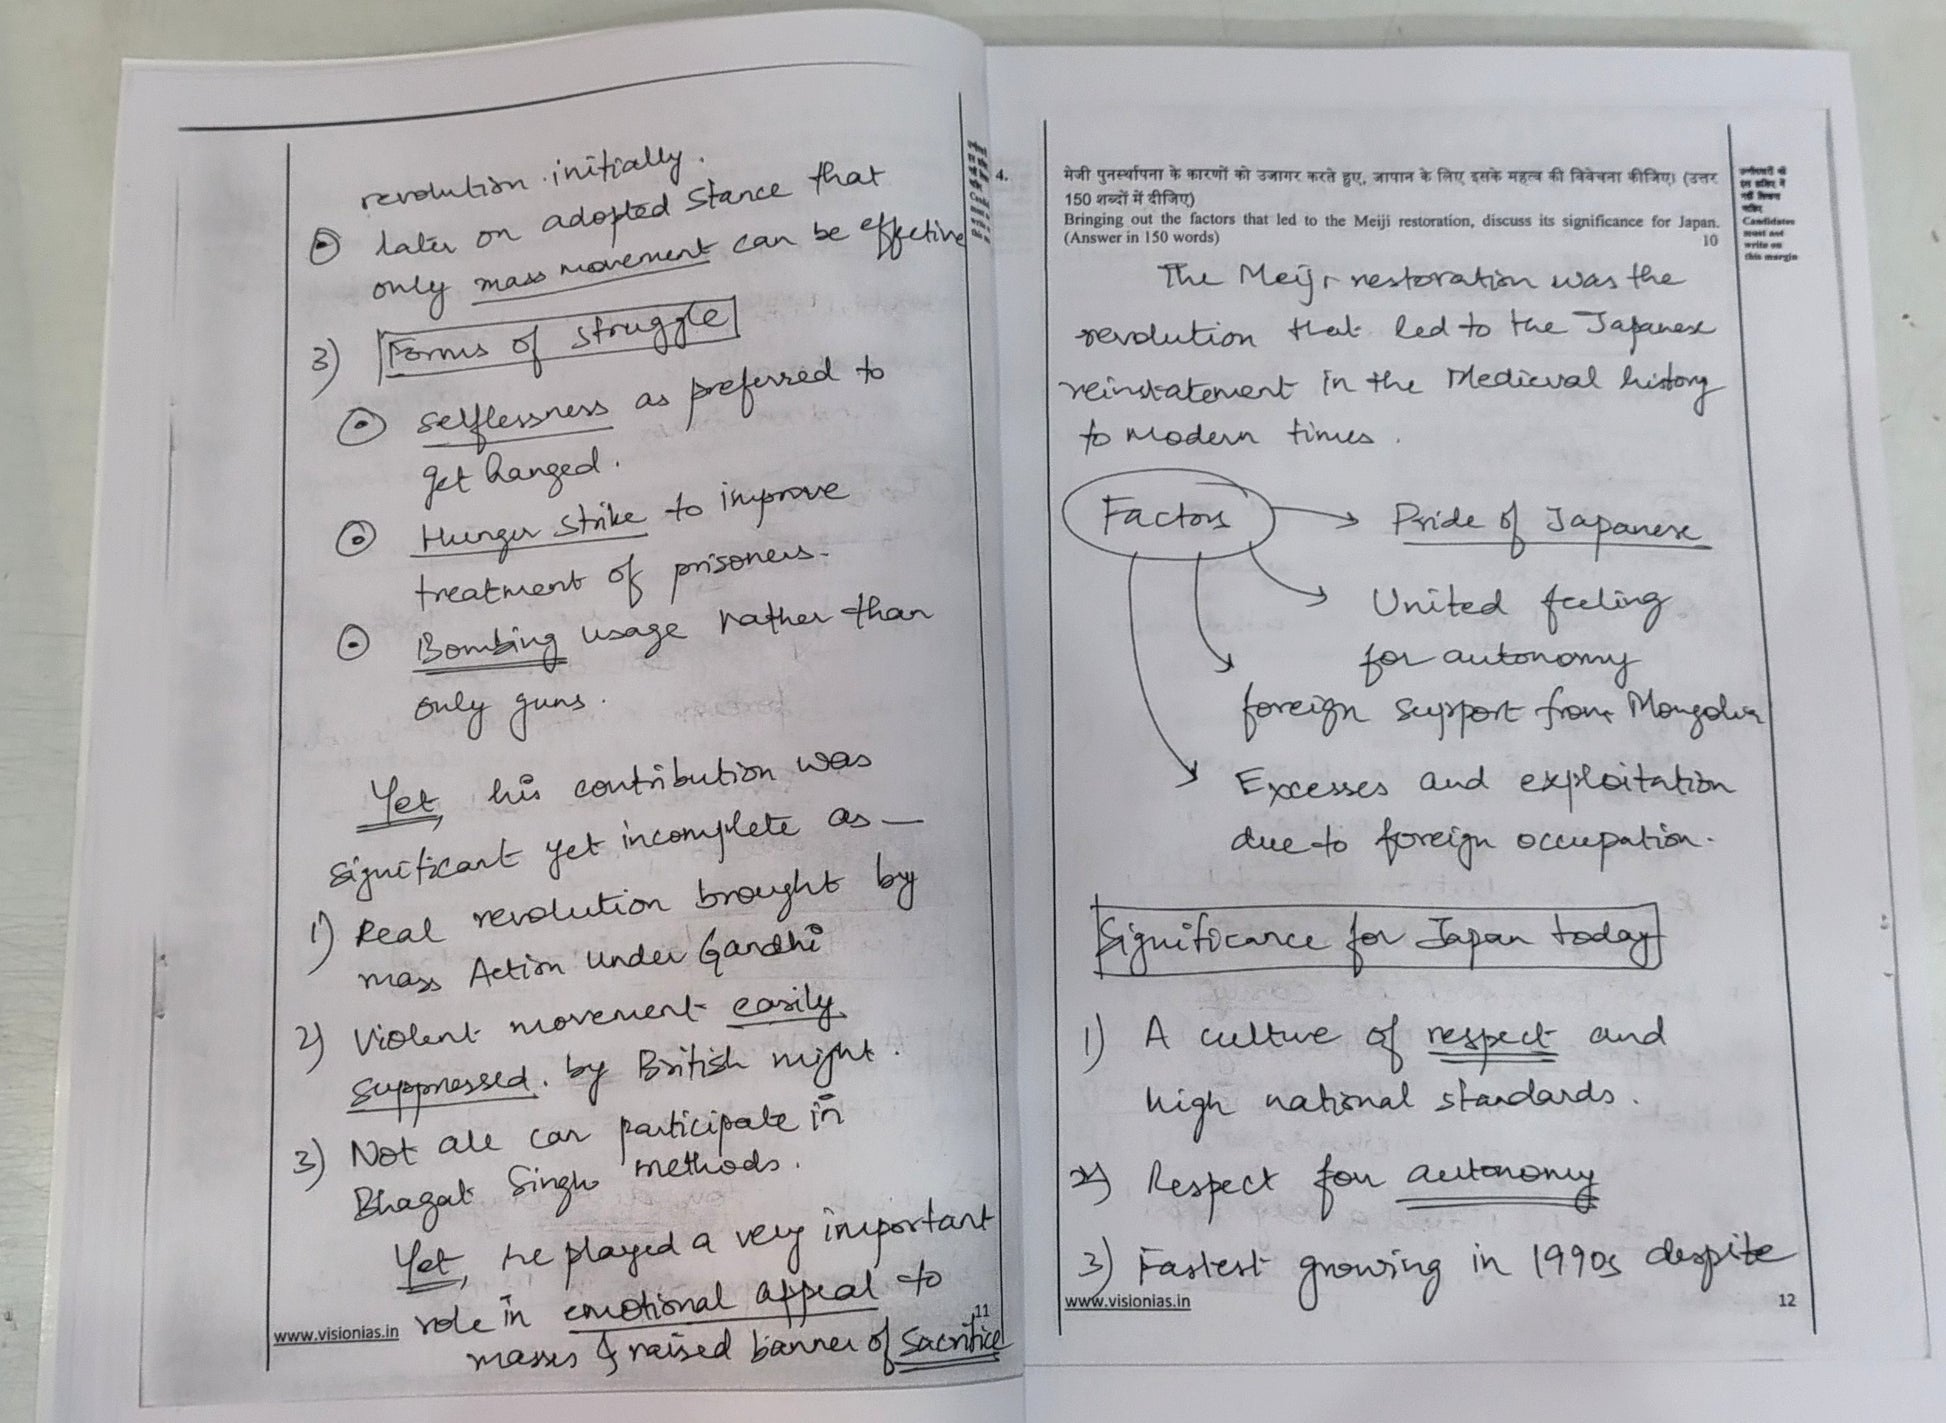 revolution initially.
later on adopted stance that
only mass movement can be effective
3) Forms of struggle
selflessness as preferred to
get hanged.
Hunger strike to improve
treatment of prisoners.
Bombing usage rather than
only guns.
Yet, his contribution was
significant yet incomplete as —
1) Real revolution brought by
mass Action under Gandhi
2) Violent movement easily
suppressed. by British might.
3) Not all can participate in
Bhagat Singh methods.
Yet, he played a very important
role in emotional appeal to
masses & raised banner of Sacrifice
www.visionias.in
11
4.
मेजी पुनर्स्थापना के कारणों को उजागर करते हुए, जापान के लिए इसके महत्व की विवेचना कीजिए। (उत्तर
150 शब्दों में दीजिए)
Bringing out the factors that led to the Meiji restoration, discuss its significance for Japan.
(Answer in 150 words) 10
Candidates
must not
write on
this margin
The Meiji restoration was the
revolution that led to the Japanese
reinstatement in the Medieval history
to modern times.
Factors
Pride of Japanese
United feeling
for autonomy
foreign support from Mongolia
Excesses and exploitation
due to foreign occupation.
Significance for Japan today
1) A culture of respect and
high national standards.
2) Respect for autonomy
3) Fastest growing in 1990s despite
www.visionias.in
12